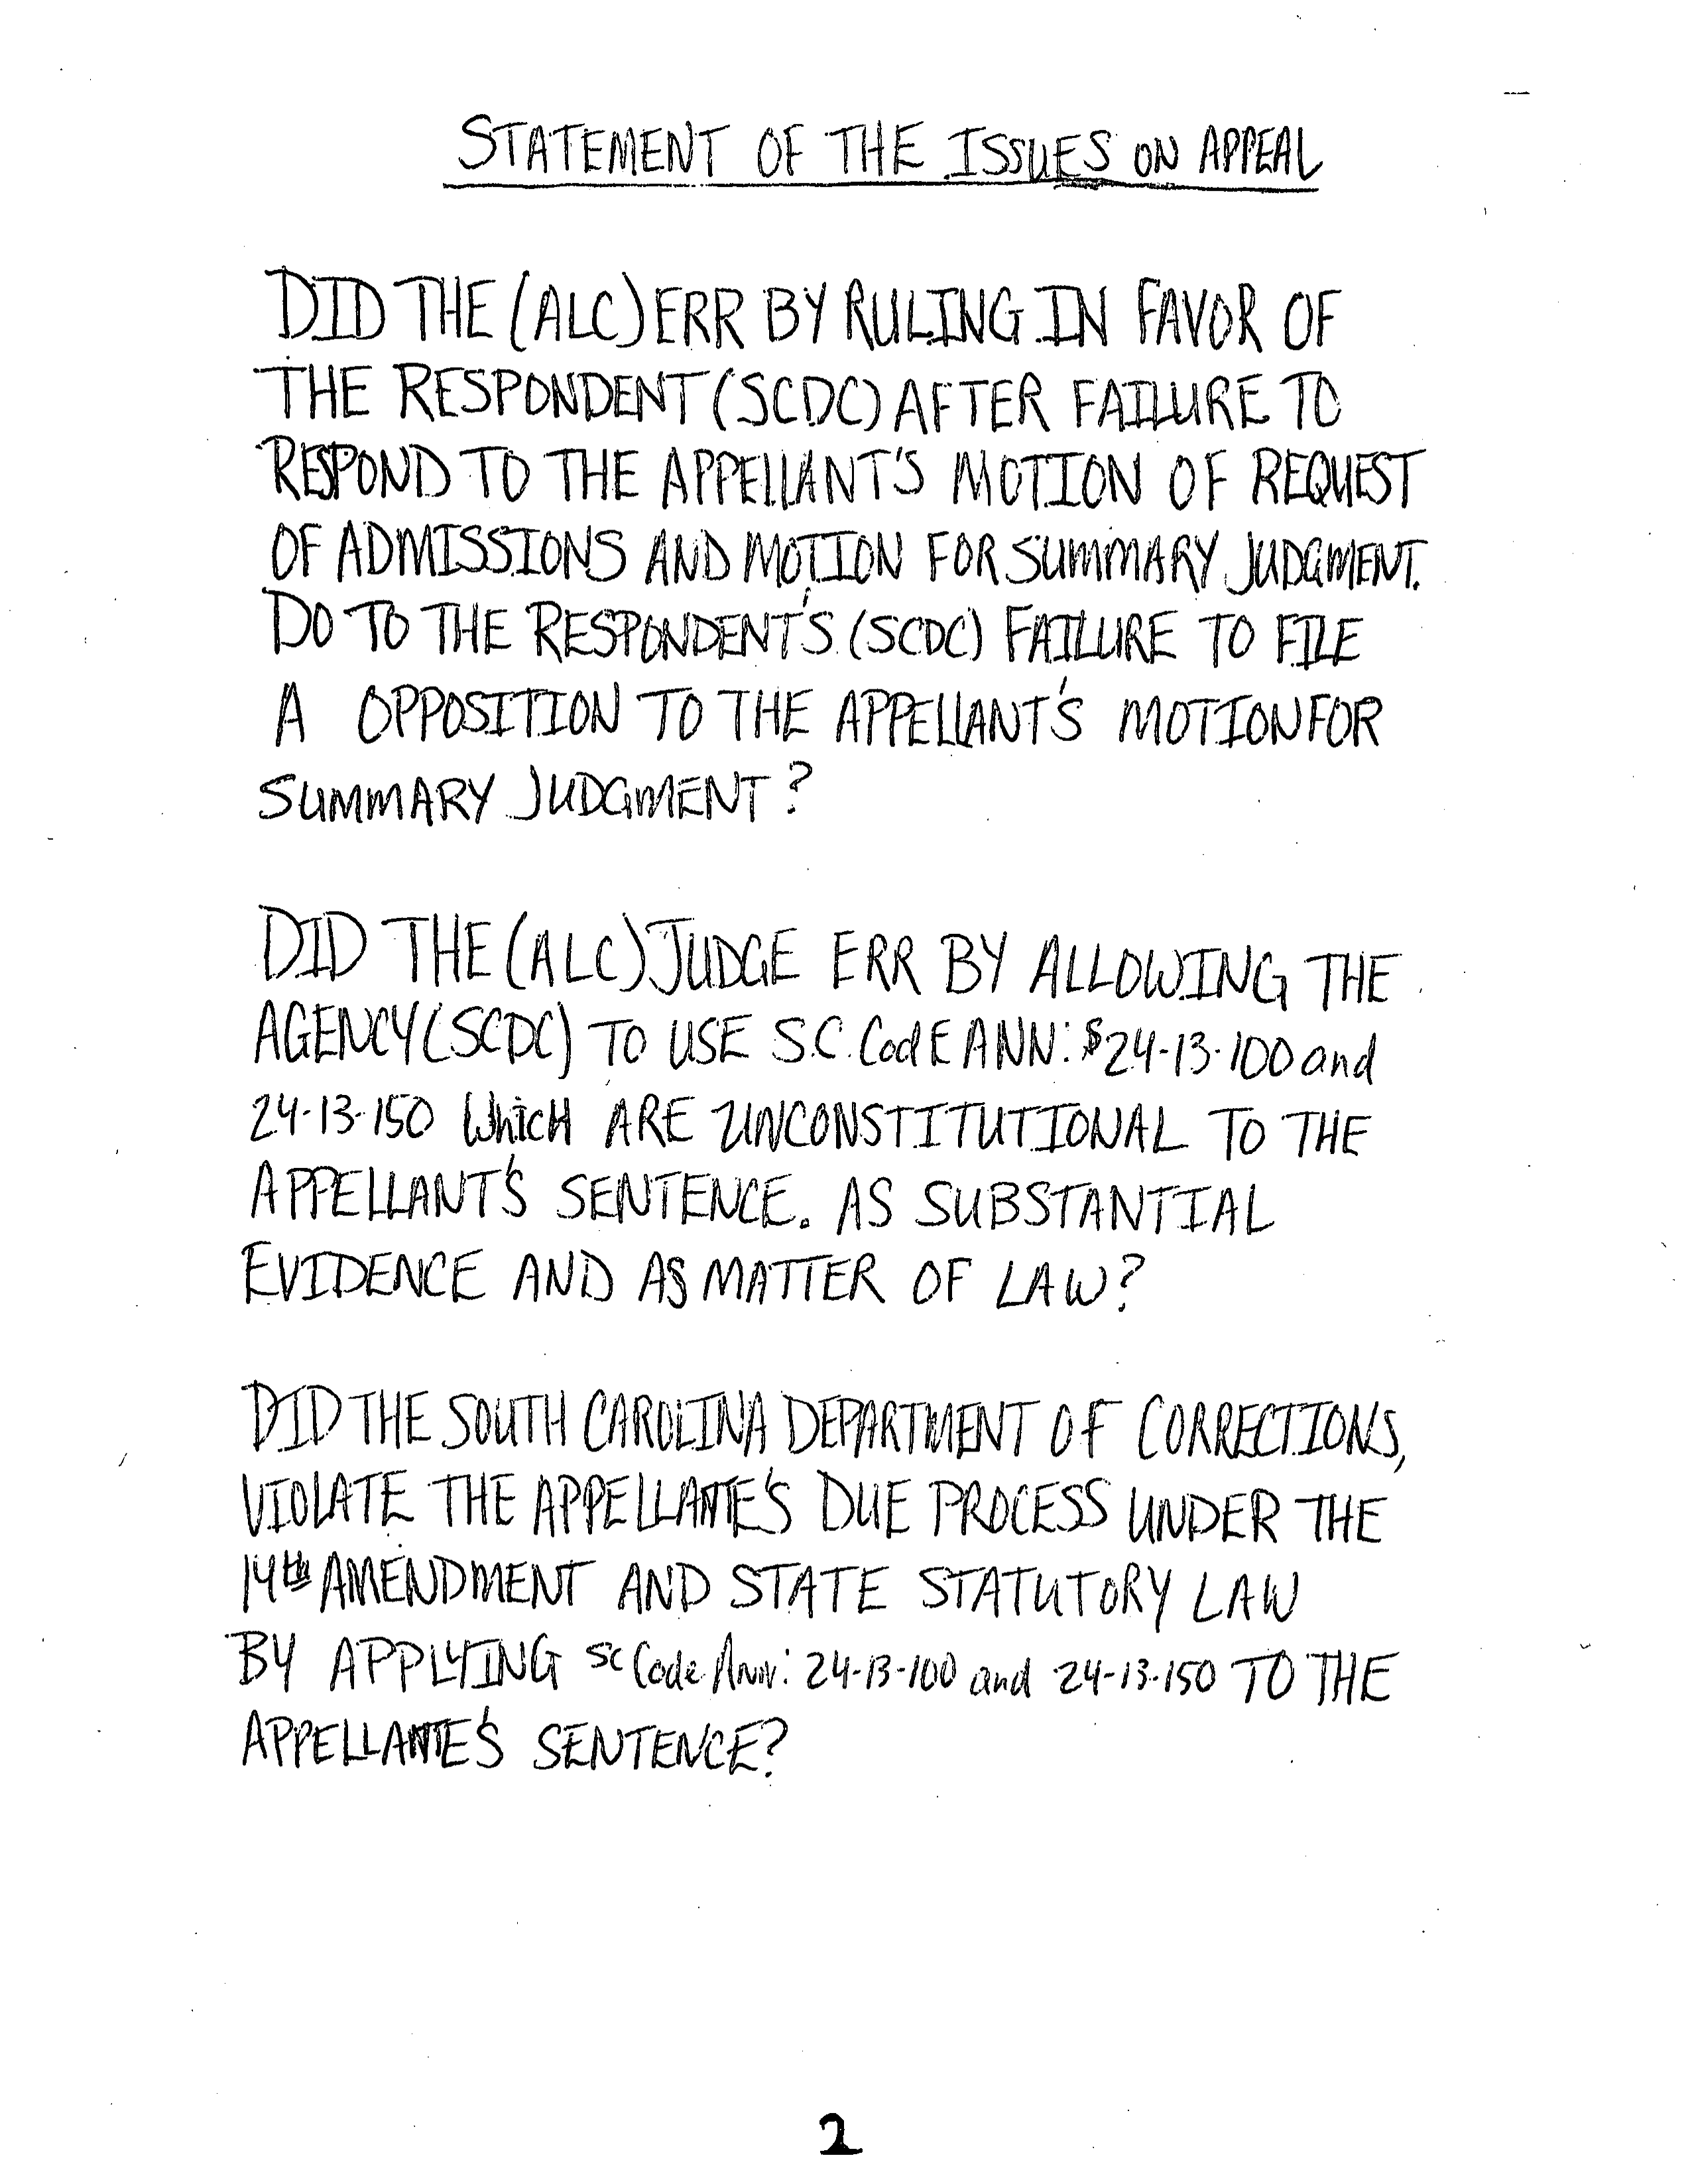 STATEMENT OF THE ISSUES ON APPEAL
DID THE (ALC) ERR BY RULING IN FAVOR OF
THE RESPONDENT (SCDC) AFTER FAILURE TO
RESPOND TO THE APPELLANT'S MOTION OF REQUEST
OF ADMISSIONS AND MOTION FOR SUMMARY JUDGMENT.
DO TO THE RESPONDENT'S (SCDC) FAILURE TO FILE
A OPPOSITION TO THE APPELLANT'S MOTION FOR
SUMMARY JUDGMENT?
DID THE (ALC) JUDGE ERR BY ALLOWING THE
AGENCY (SCDC) TO USE S.C. CodE ANN: $24-13-100 and
24-13-150 WhicH ARE UNCONSTITUTIONAL TO THE
APPELLANT'S SENTENCE. AS SUBSTANTIAL
EVIDENCE AND AS MATTER OF LAW?
DID THE SOUTH CAROLINA DEPARTMENT OF CORRECTIONS,
VIOLATE THE APPELLANTE'S DUE PROCESS UNDER THE
14th AMENDMENT AND STATE STATUTORY LAW
BY APPLYING SC Code Ann: 24-13-100 and 24-13-150 TO THE
APPELLANTE'S SENTENCE?
2